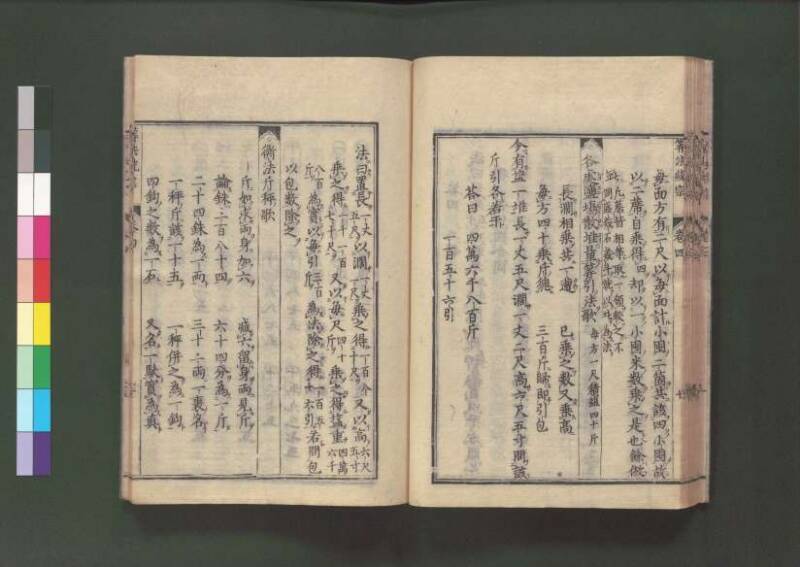 每面方有二尺以每面計小圍二箇共該四小圍故
以二蓆自乘得四却以一小圍米數乘之是也餘倣
此凡蓆皆相
各處鹽場散堆量算引法歌
每方一尺 四十斤
長濶相乘共一遭
已乘之數又乘高
每方四十乘斤總
三百斤歸即引包
今有鹽一堆長一丈五尺濶一丈二尺高六尺五寸問該
斤引各若干
荅曰
四萬六千八百斤
一百五十六引
法曰置長一丈五尺以濶一丈二尺乘之得一百八十尺又以高六尺五寸
乘之得一千一百七十尺又以每尺四十斤乘之得鹽重四萬六千八百斤
為實以每引三百斤為法除之得一百五十六引若問包
以包數除之
衡法斤秤歌
斤如求兩身加六
減六留身兩見斤
論銖三百八十四
六十四分為一斤
二十四銖為一兩
三十二兩一裹名
一秤斤該一十五
二秤併之為一鈞
四鈞之數為一石
又名一馱實為真
算法統宗
卷四
卷四